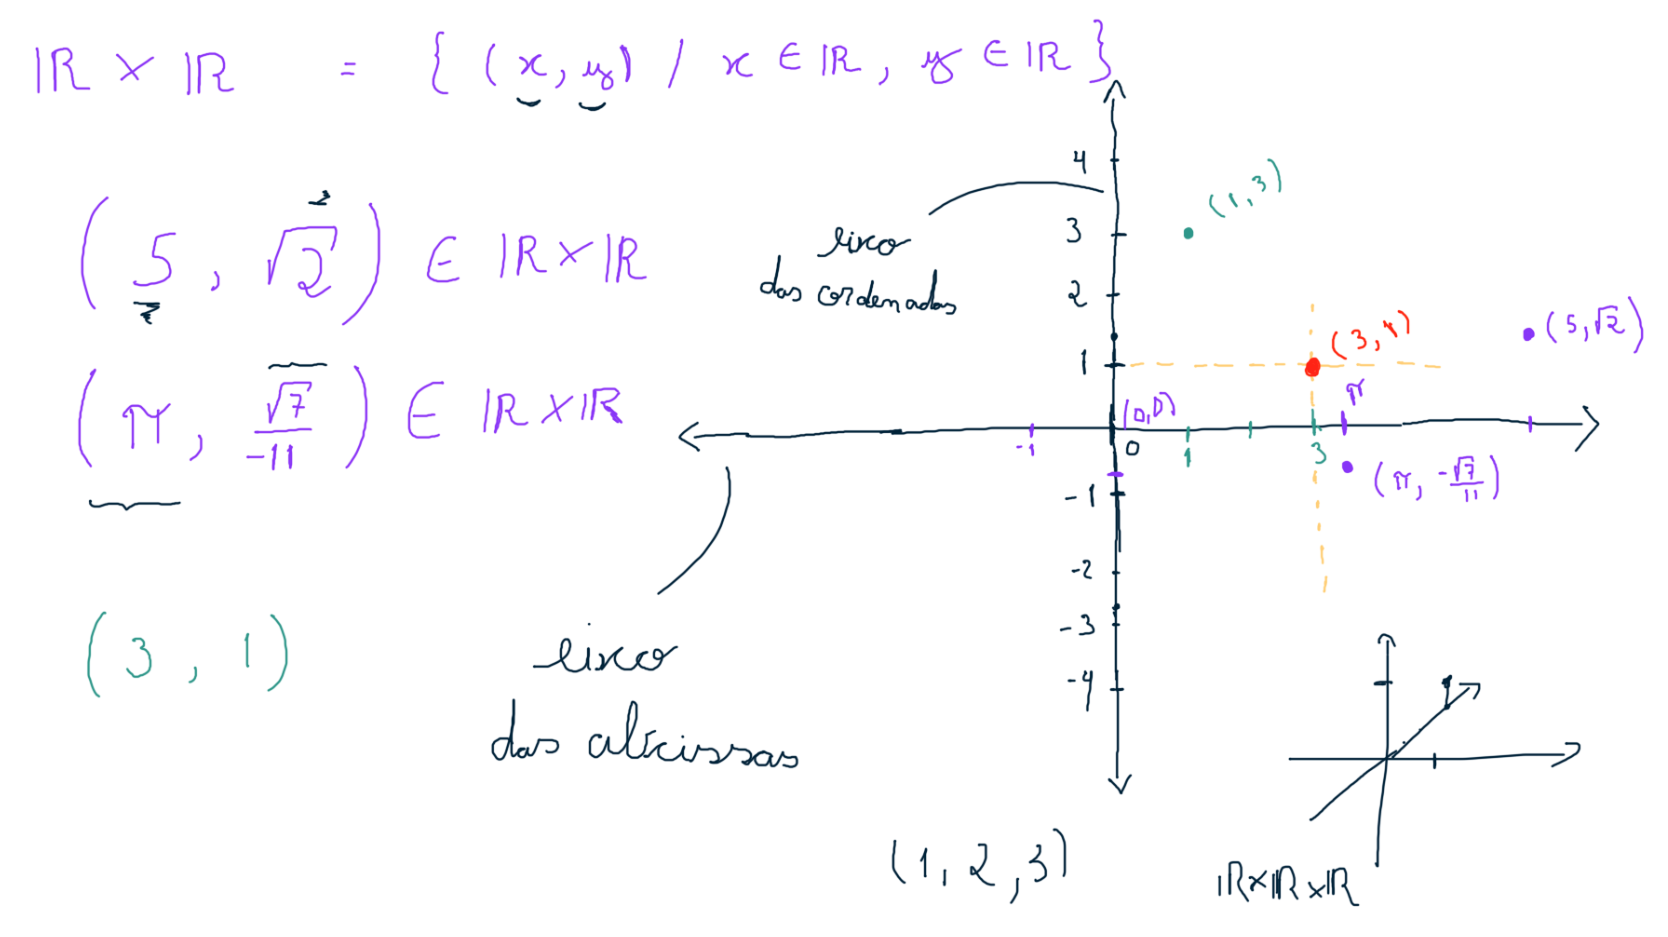 ℝ × ℝ = { (x, y) / x ∈ ℝ, y ∈ ℝ }
(5, √2) ∈ ℝ×ℝ
(π, √7/-11) ∈ ℝ×ℝ
(3, 1)
eixo
das ordenadas
eixo
das abscissas
4
3
2
1
-1
-2
-3
-4
(1, 3)
(3, 1)
(5, √2)
π
(0,0)
-1
0
1
3
(π, -√7/11)
(1, 2, 3)
ℝ×ℝ×ℝ